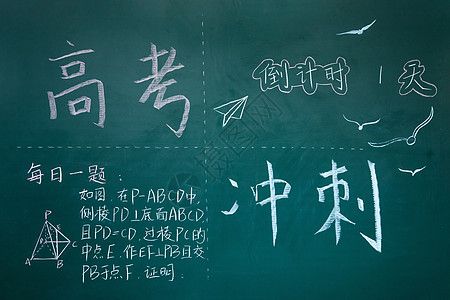 高考
倒计时 1 天
每日一题：
如图.在P-ABCD中,
侧棱PD⊥底面ABCD,
且PD=CD,过棱PC的
中点E.作EF⊥PB且交
PB于点F.证明:
P
A
B
C
冲刺